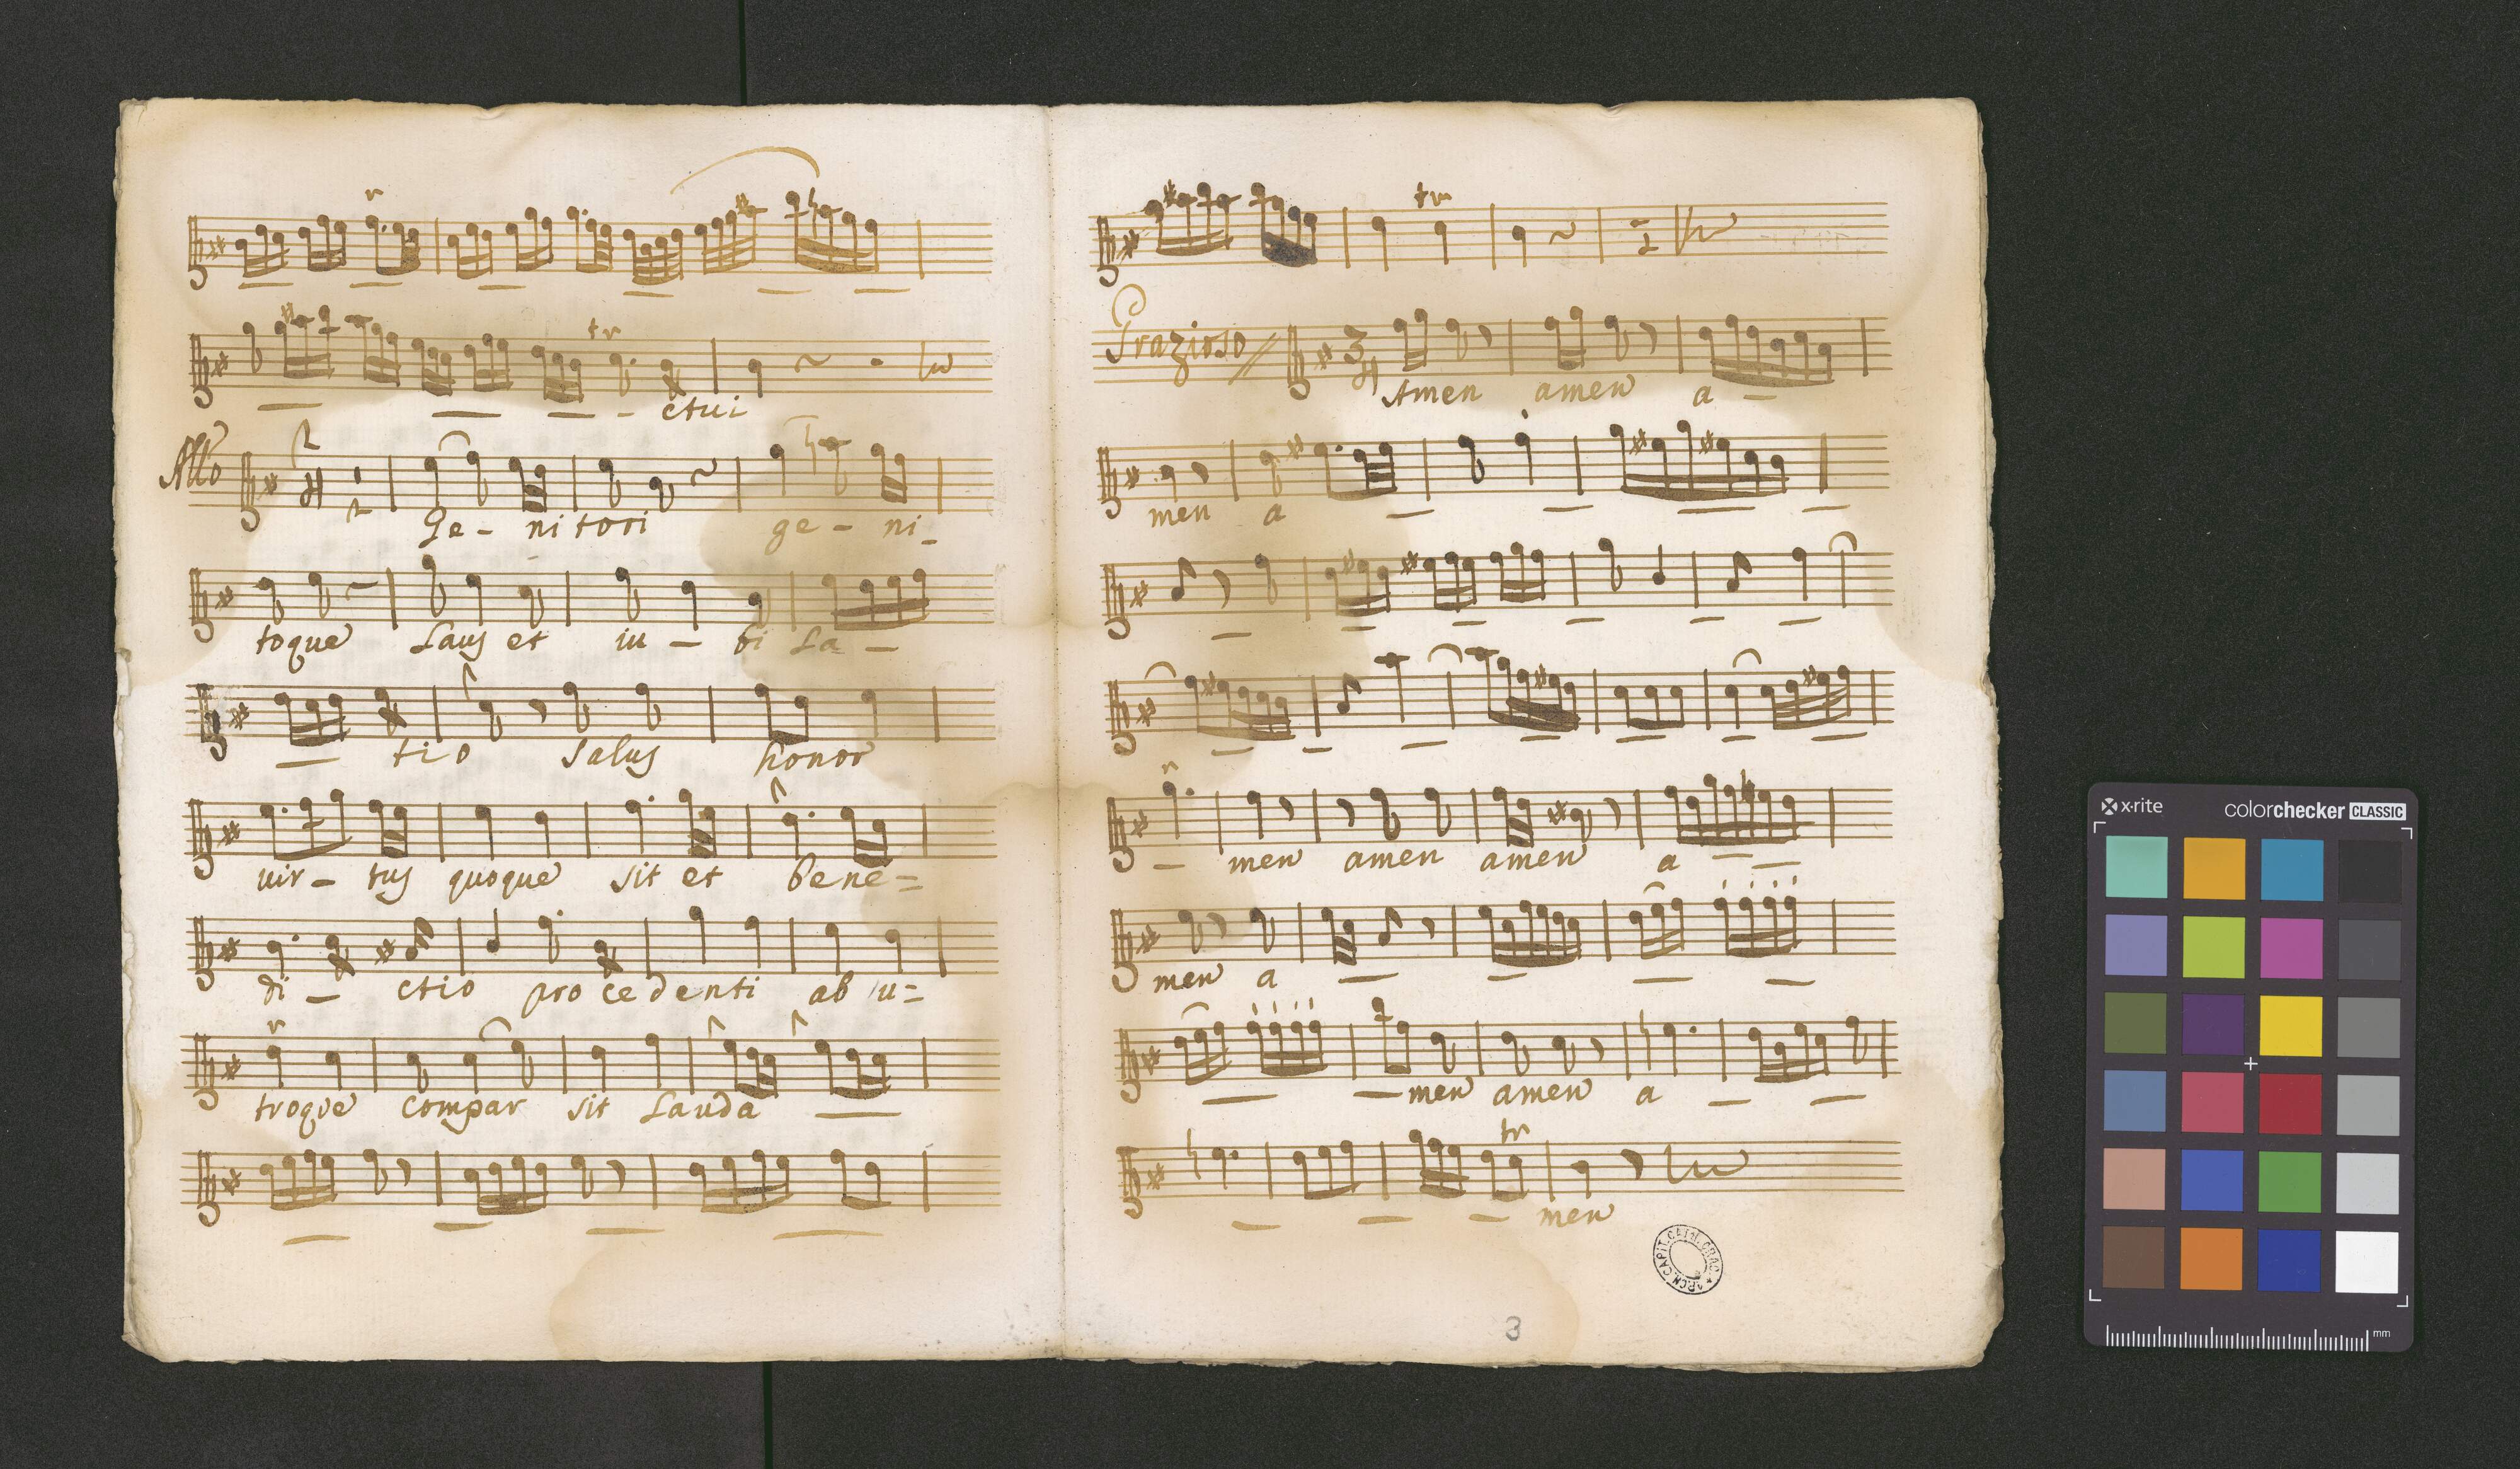 tr
ctui
Allo 2/4 2
Ge - ni tori ge - ni -
toque Laus et iu - bi La -
tio Salus honor
vir - tus quoque sit et bene =
di - ctio pro ce denti ab u =
troque compar sit Lauda
tr
Grazioso 3
Amen amen a -
men a
men amen amen a
men a
men amen a
tr
men
ARCH. CAPIT. CATH. CRAC.
3
x·rite
colorchecker CLASSIC
mm